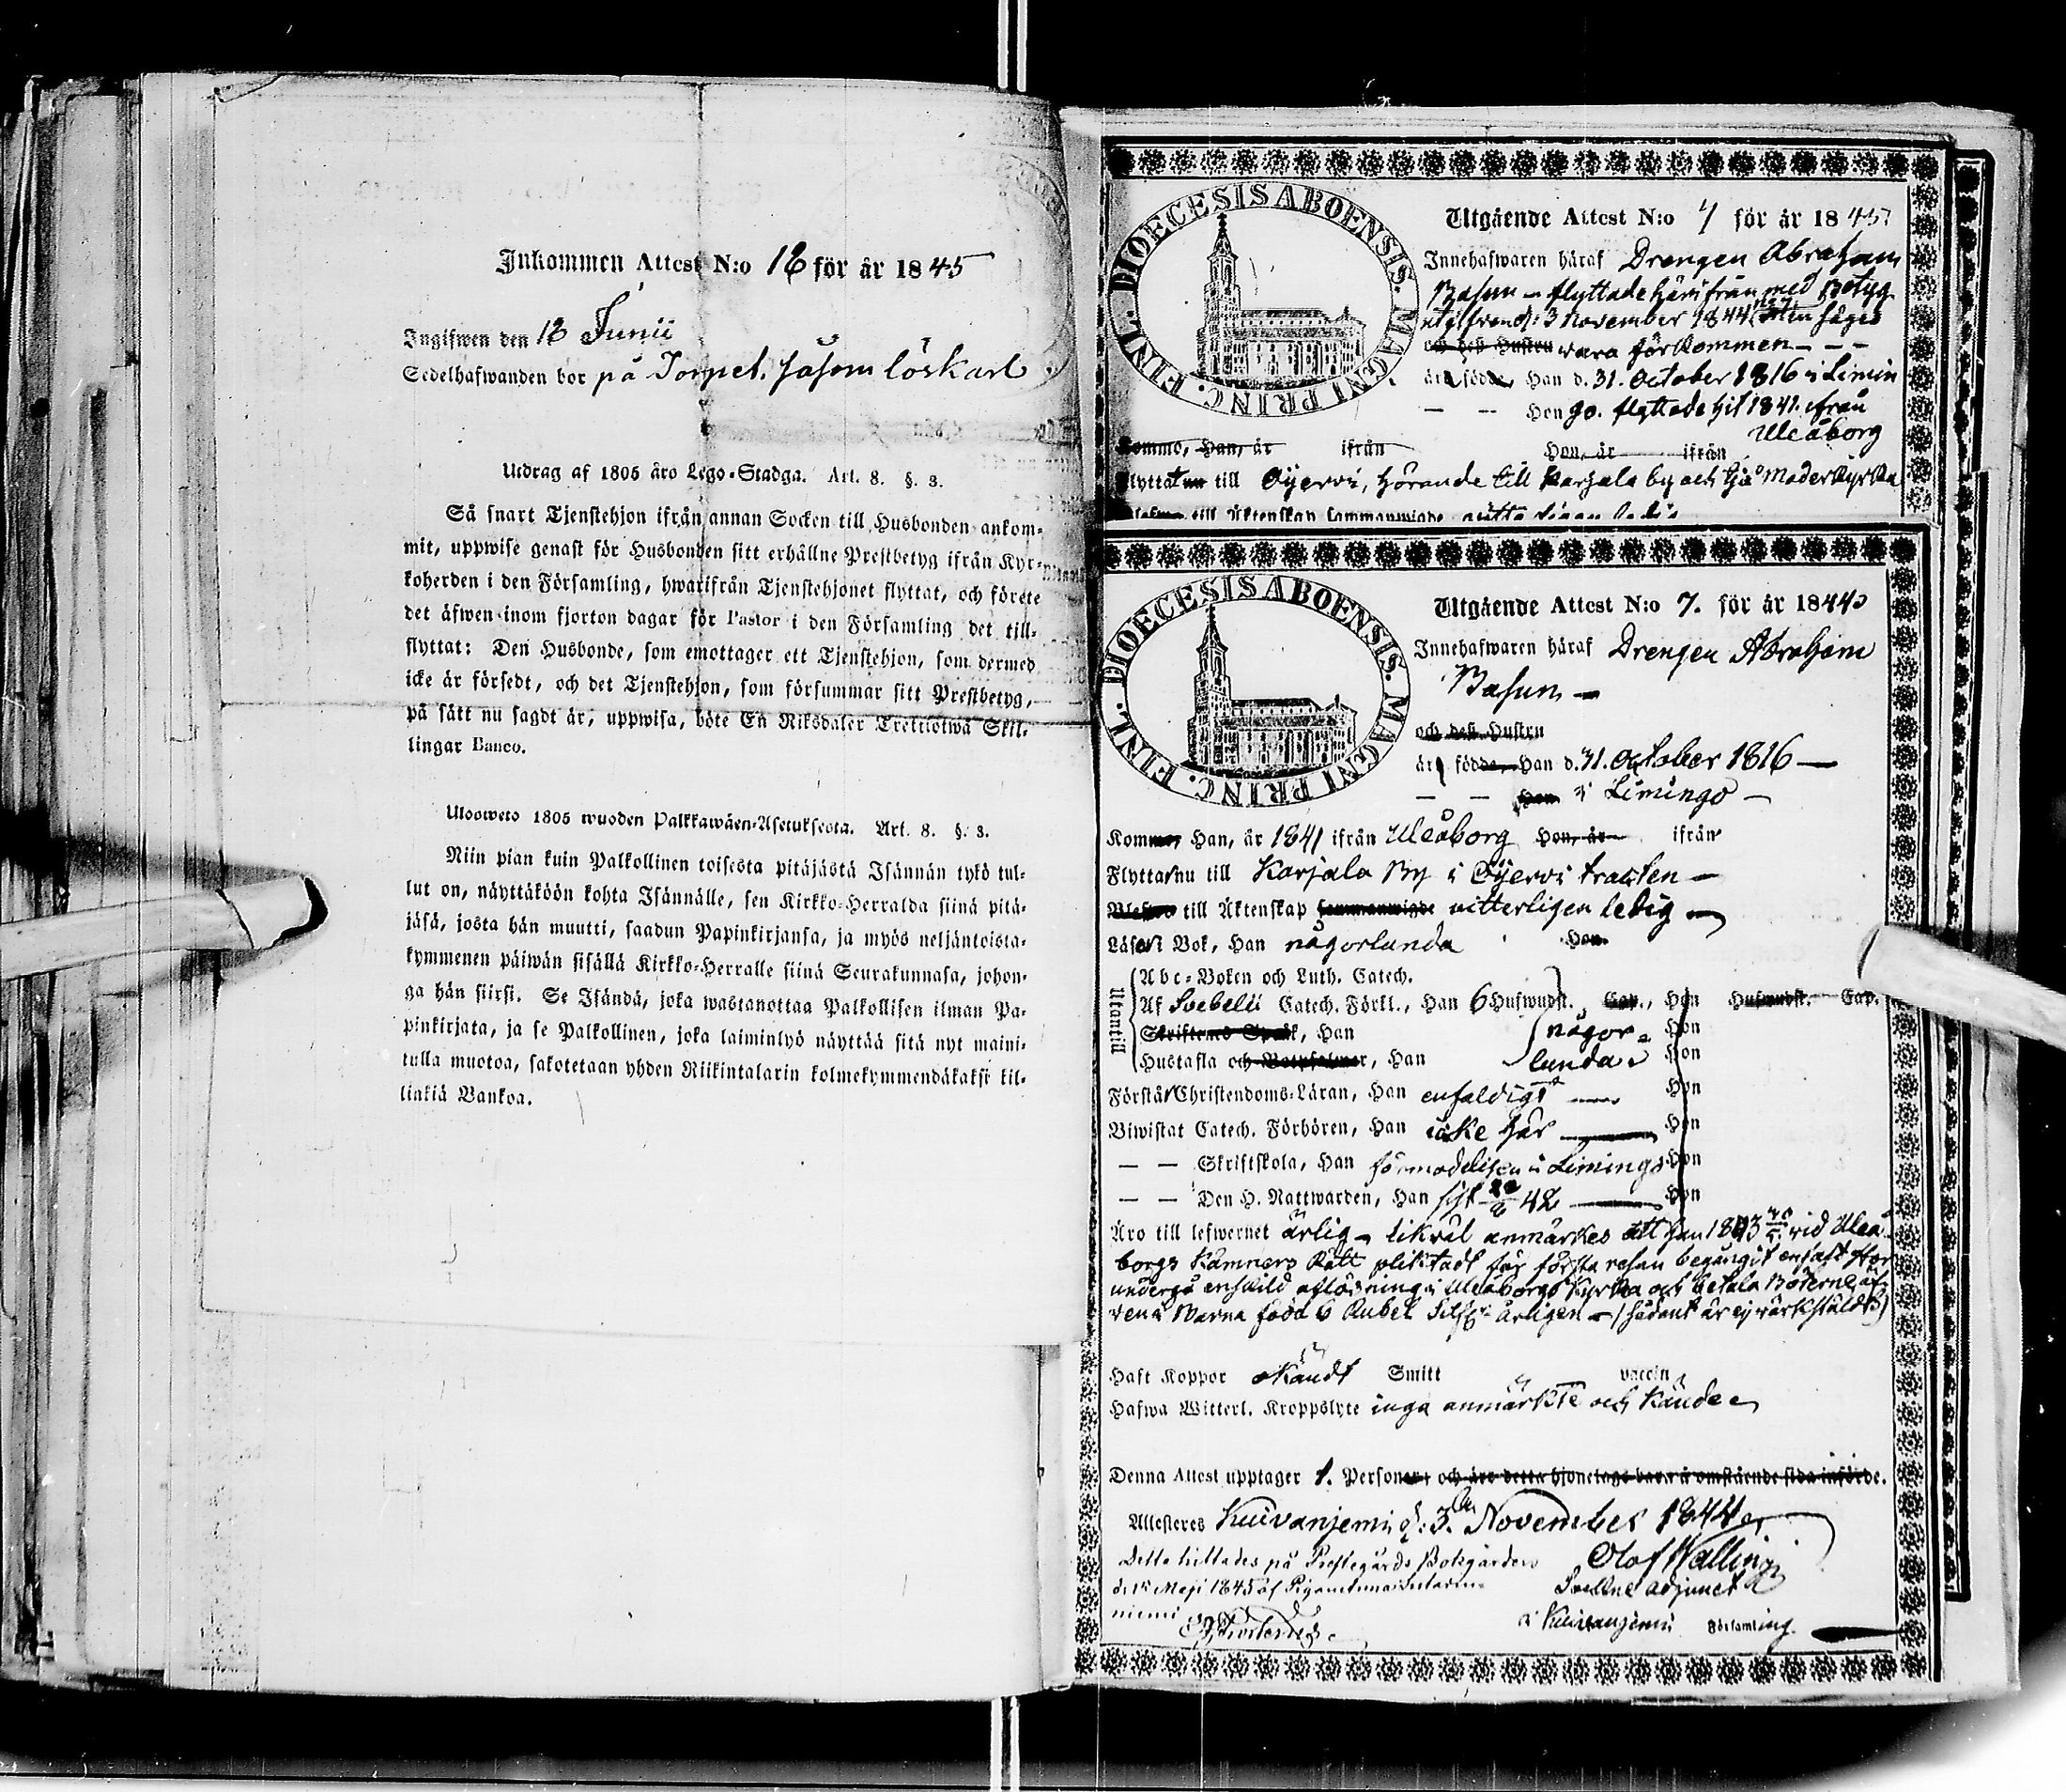 Inkommen Attest N:o 12 för år 1845
Ingifwen den 12 Junii
Sedelhafwanden bor på Torpet, såsom löskarl
Utdrag af 1805 åro Lego-Stadga. Art. 8. §. 3.
Så snart Tjenstehjon ifrån annan Socken till Husbonden ankom-
mit, uppwise genast för Husbonden sitt erhållne Prestbetyg ifrån Kyr-
koherden i den Församling, hwarifrån Tjenstehjonet flyttat, och förete
det äfwen inom fjorton dagar för Pastor i den Församling det till-
flyttat: Den Husbonde, som emottager ett Tjenstehjon, som dermed
icke är försedt, och det Tjenstehjon, som försummar sitt Prestbetyg,
på sätt nu sagdt är, uppwisa, böte En Riksdaler Trettiotwå Skil-
lingar Banco.
Ulosweto 1805 wuoden Palkkawäen-Asetuksesta. Art. 8. §. 3.
Niin pian kuin Palkollinen toisesta pitäjästä Isännän tykö tul-
lut on, näyttäköön kohta Isännälle, sen Kirkko-Herralda siinä pitä-
jäsä, josta hän muutti, saadun Papinkirjansa, ja myös neljäntoista-
kymmenen päiwän sisällä Kirkko-Herralle siinä Seurakunnasa, johon-
ga hän siirsi. Se Isändä, joka wastanottaa Palkollisen ilman Pa-
pinkirjata, ja se Palkollinen, joka laiminlyö näyttää sitä nyt maini-
tulla muotoa, sakotetaan yhden Riikintalarin kolmekymmendäkaksi kil-
linkiä Bankoa.
DIOECESIS ABOENSIS. MAGNI PRINC. FINL.
Utgående Attest N:o 7 för år 1845
Innehafwaren häraf Drengen Abraham
Basun - flyttade härifrån med Betyg
d: 3 November 1844, säges
och dess Hustru vara förkommen - - -
är född, Han d. 31. October 1816 i Limin
— — Hon go. flyttade hit 1841. ifrån
Uleåborg
Komme, Han, år ifrån Hon, år ifrån
Flyttat till Oijervi, hörande till Karjala by och Ijå Moderkyrka
till Äktenskap sammanwigde
DIOECESIS ABOENSIS. MAGNI PRINC. FINL.
Utgående Attest N:o 7. för år 1844
Innehafwaren häraf Drengen Abraham
Basun —
och dess Hustru
är födde, Han d. 31. October 1816 —
— — Hon i Limingo —
Komme, Han, år 1841 ifrån Uleåborg Hon, år ifrån
Flyttar nu till Karjala By i Oijervi trakten —
till Äktenskap sammanwigde vitterligen ledig —
Läser i Bok, Han någorlunda Hon
Utantill
Abc-Boken och Luth. Catech.
Af Svebelii Catech. Förkl., Han 6 Hufwudst. Cap., Hon Hufwudst. Cap.
Skriftenes Språk, Han någor- Hon
Hustafla och Botpsalmer, Han lunda Hon
Förstår Christendoms-Läran, Han enfaldigt — Hon
Biwistat Catech. Förhören, Han icke här — Hon
— — Skriftskola, Han förmodeligen i Limingo Hon
— — Den H. Nattwarden, Han sist 42 — Hon
Äro till lefwernet ärlig - likväl anmärkes att han 1843 vid Uleå-
borgs Kämners Rätt pliktadt för första resan begångit
undergå enskild aflösning i Uleåborgs Kyrka och betala
Barna föda 6 Rubel Silfver årligen - (sådant är ej värkstäldt)
Haft Koppor okändt Smitt vaccin
Hafwa Witterl. Kroppslyte inga anmärkte och kände
Denna Attest upptager 1. Personer, och äro detta hjonelags barn å omstående sida införde.
Attesteras Kuivaniemi d: 3. November 1844
Detta hittades på Prestegårds Bokgården Olof Walling
d. 1 Maji 1845 af Adjunct
niemi i Kuivaniemi Församling.